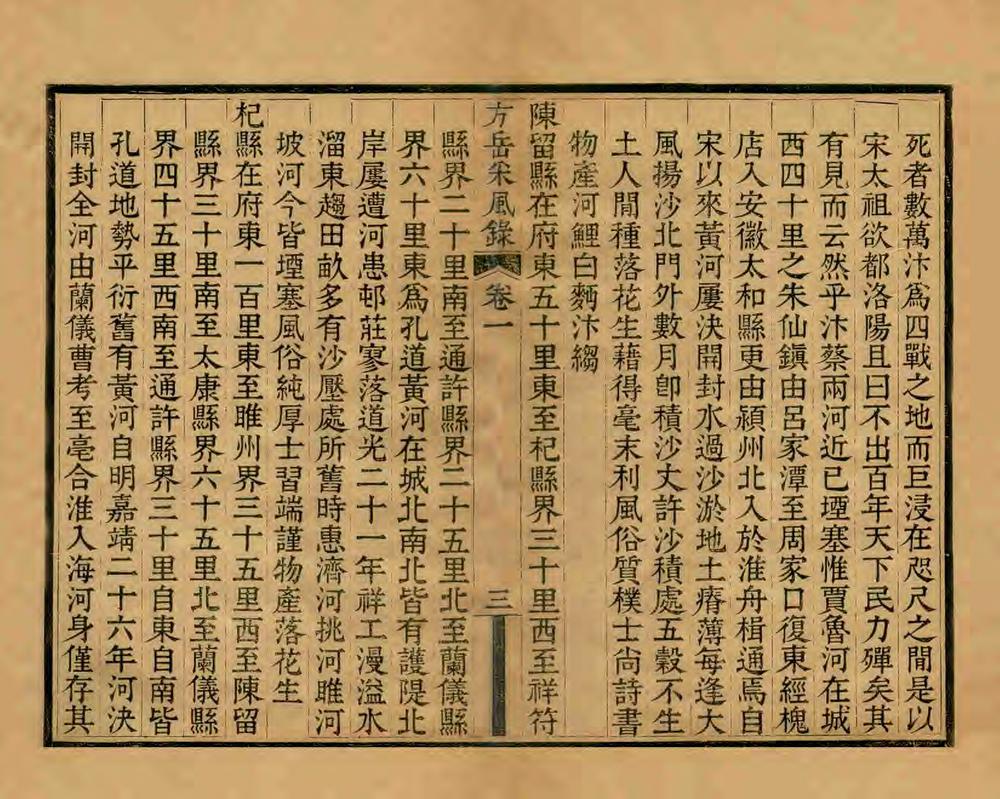 死者數萬汴爲四戰之地而巨浸在咫尺之閒是以
宋太祖欲都洛陽且曰不出百年天下民力殫矣其
有見而云然乎汴蔡兩河近已堙塞惟賈魯河在城
西四十里之朱仙鎭由呂家潭至周家口復東經槐
店入安徽太和縣更由潁州北入於淮舟楫通焉自
宋以來黃河屢決開封水過沙淤地土瘠薄每逢大
風揚沙北門外數月卽積沙丈許沙積處五穀不生
土人閒種落花生藉得毫末利風俗質樸士尙詩書
物產河鯉白麪汴縐
陳留縣在府東五十里東至杞縣界三十里西至祥符
方岳采風錄 卷一 三
縣界二十里南至通許縣界二十五里北至蘭儀縣
界六十里東爲孔道黃河在城北南北皆有護隄北
岸屢遭河患邨莊寥落道光二十一年祥工漫溢水
溜東趨田畝多有沙壓處所舊時惠濟河挑河睢河
坡河今皆堙塞風俗純厚士習端謹物產落花生
杞縣在府東一百里東至睢州界三十五里西至陳留
縣界三十里南至太康縣界六十五里北至蘭儀縣
界四十五里西南至通許縣界三十里自東自南皆
孔道地勢平衍舊有黃河自明嘉靖二十六年河決
開封全河由蘭儀曹考至亳合淮入海河身僅存其